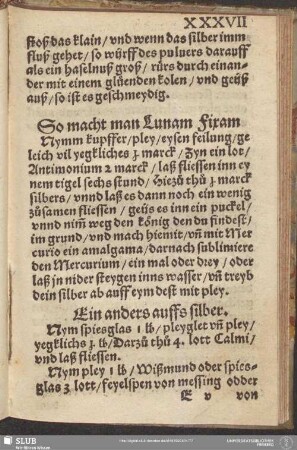 XXXVII
stoß das klain/ vnd wenn das silber imm
fluß gehet/ so würff des puluers darauff
als ein haselnuß groß/ rürs durch einan-
der mit einem glüenden kolen/ vnd geüß
auß/ so ist es geschmeydig.
So macht man Lunam Fixam
Nymm kupffer/ pley/ eysen feilung/ ge
leich vil yegkliches ʒ marck/ Zyn ein lot/
Antimonium 2 marck/ laß fliessen inn ey
nem tigel sechs stund/ Hiezů thů ʒ marck
silbers/ vnnd laß es dann noch ein wenig
zůsamen fliessen/ geüs es inn ein puckel/
vnnd nim̃ weg den könig den du findest/
im grund/ vnd mach hiemit/ vñ mit Mer
curio ein amalgama/ darnach sublimiere
den Mercurium/ ein mal oder drey/ oder
laß jn nider steygen inns wasser/ vñ treyb
dein silber ab auff eym dest mit pley.
Ein anders auffs silber.
Nym spiesglas 1 ℔/ pleyglet vñ pley/
yegklichs ʒ ℔/ Darzů thů 4. lott Calmi/
vnd laß fliessen.
Nym pley 1 ℔/ Wißmund oder spies-
glas ʒ lott/ feyelspen von messing odder
E v von
SLUB
Wir führen Wissen.